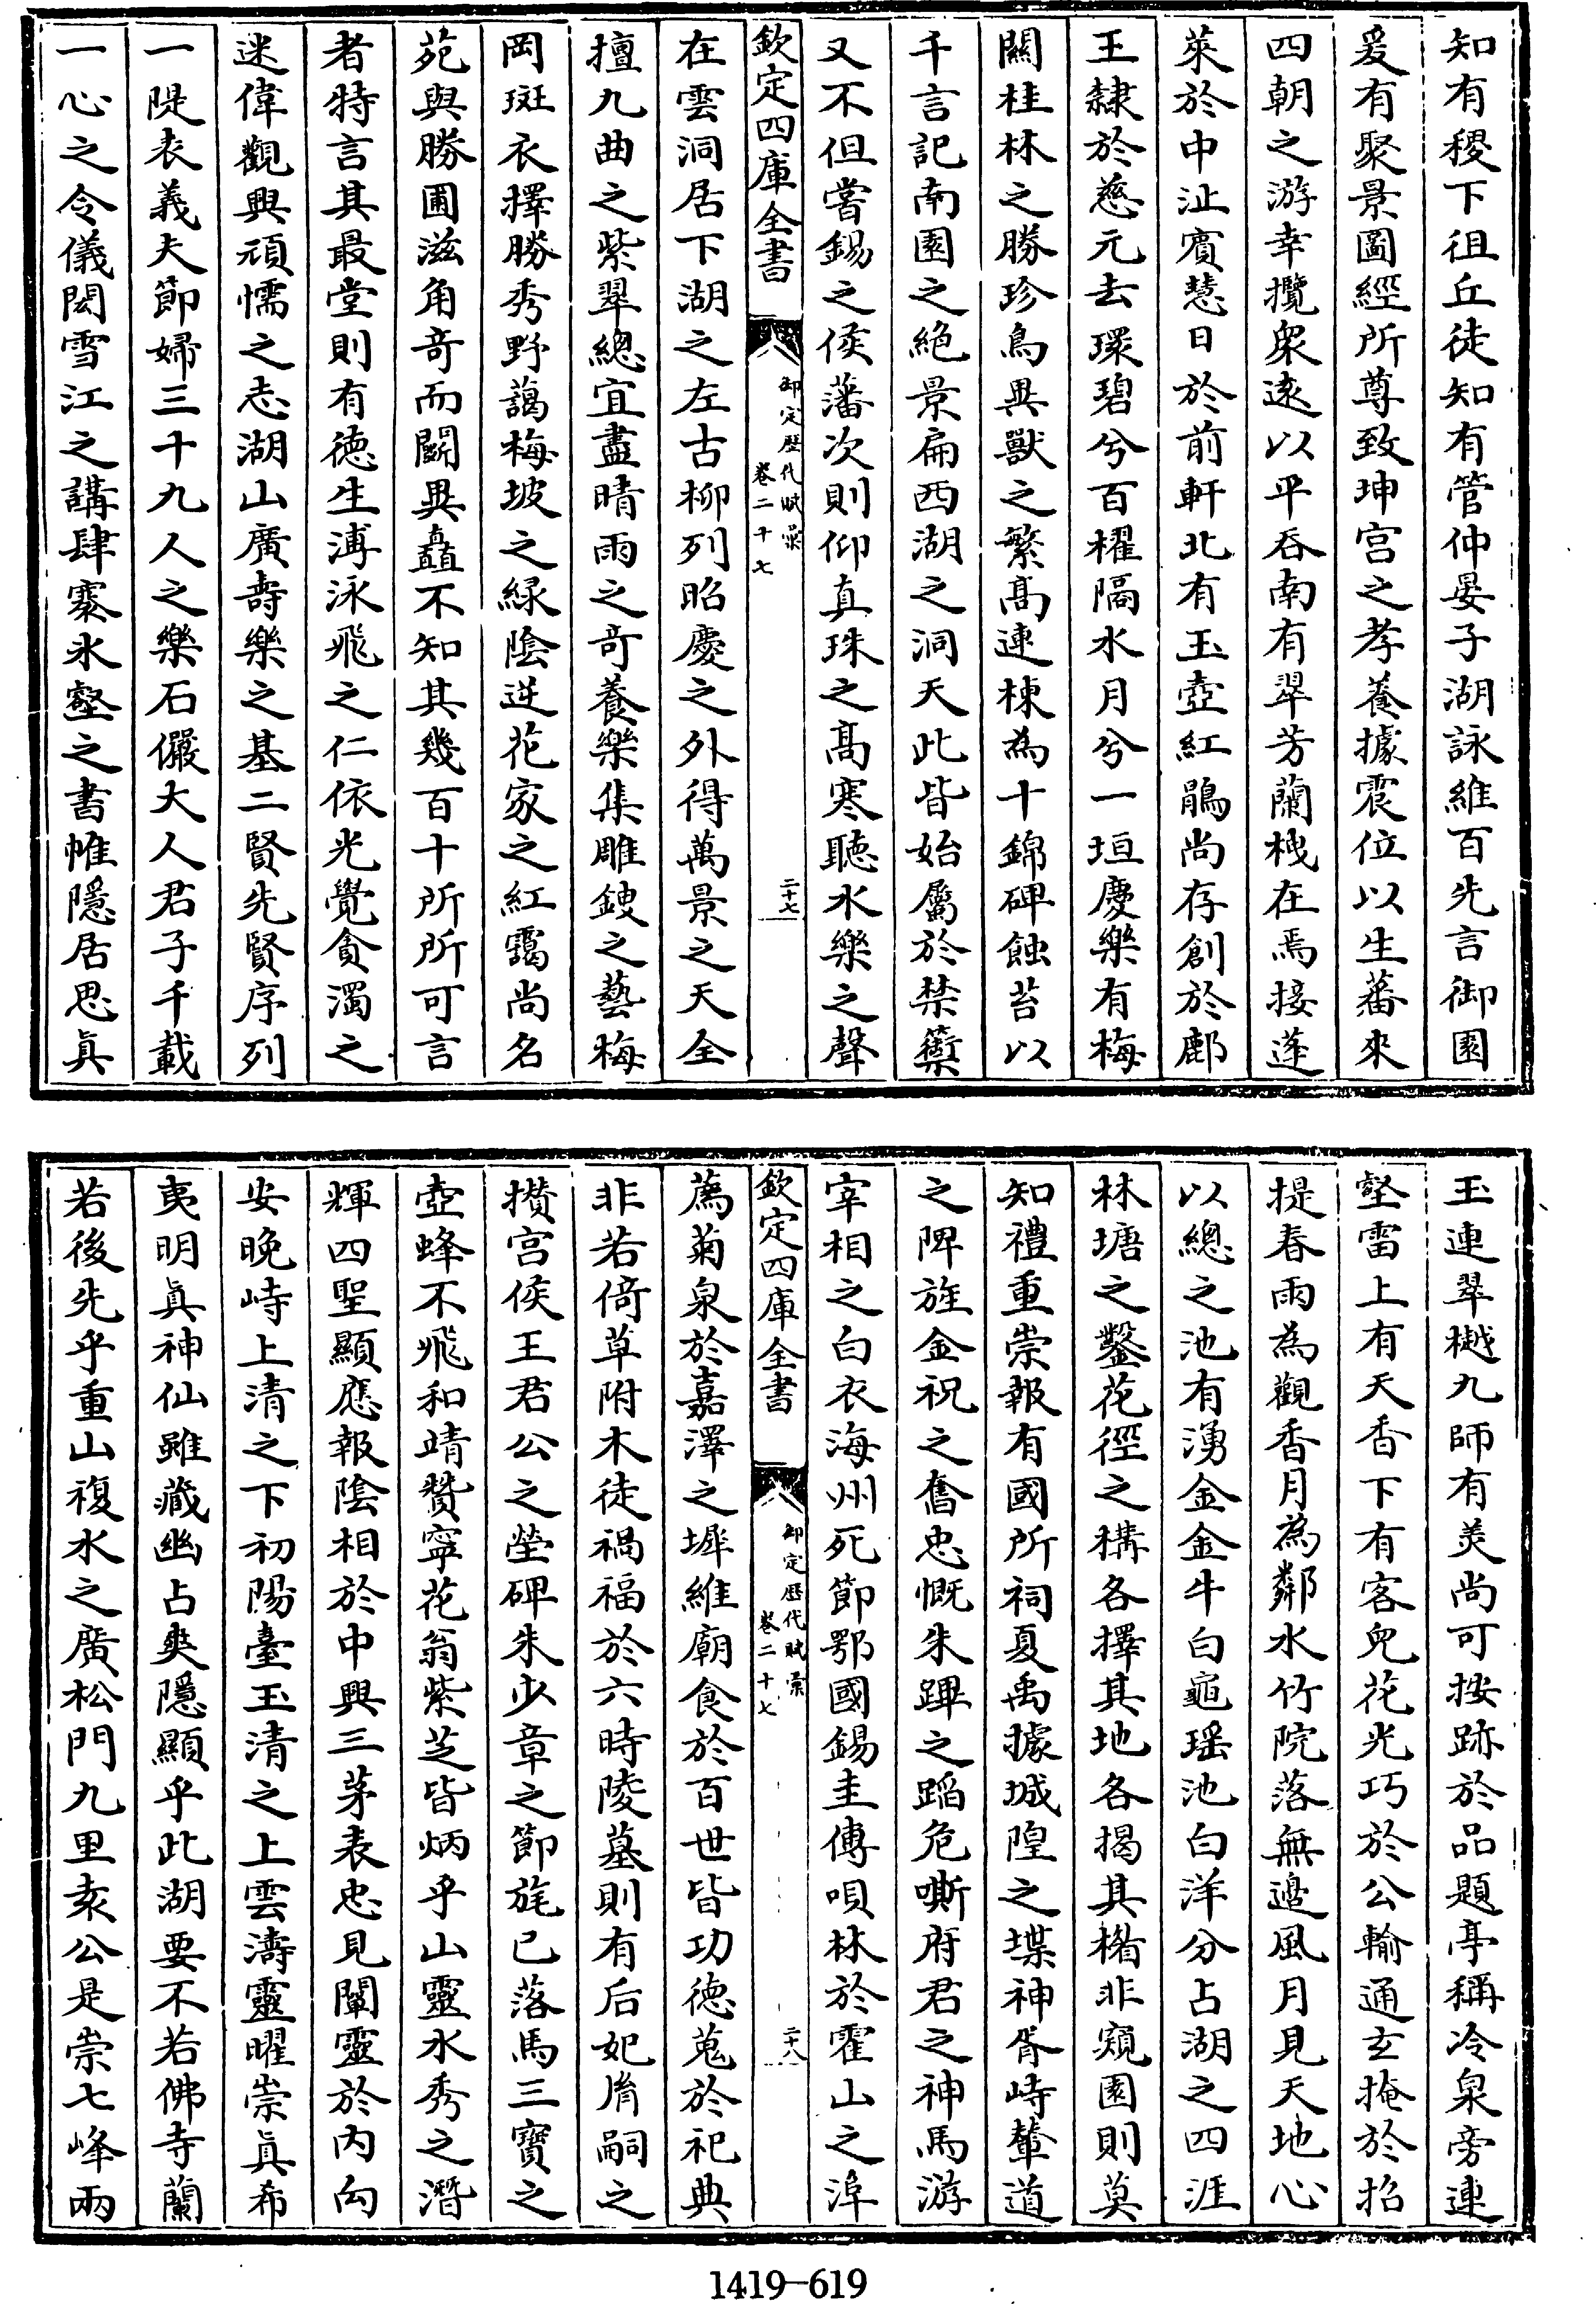 知有稷下徂丘徒知有管仲晏子湖詠維百先言御園
爰有聚景圖經所尊致坤宮之孝養據震位以生蕃來
四朝之游幸攬衆逺以平吞南有翠芳蘭棧在焉接蓬
萊於中沚賓慧日於前軒北有玉壺紅鵑尚存創於鄜
王隸於慈元去環碧兮百櫂隔水月兮一垣慶樂有梅
關桂林之勝珍鳥異獸之繁髙連棟為十錦碑蝕苔以
千言記南園之絶景扁西湖之洞天此皆始屬於禁籞
又不但嘗錫之侯藩次則仰真珠之髙寒聽水樂之聲
欽定四庫全書
御定歴代賦彙
卷二十七
二十七
在雲洞居下湖之左古柳列昭慶之外得萬景之天全
擅九曲之紫翠總宜盡晴雨之竒養樂集雕鎪之藝梅
岡斑衣擇勝秀野藹梅坡之緑陰迸花家之紅靄尚名
苑與勝圃滋角竒而鬬異矗不知其幾百十所所可言
者特言其最堂則有徳生溥泳飛之仁依光覺貪濁之
迷偉觀興頑懦之志湖山廣壽樂之基二賢先賢序列
一隄表義夫節婦三十九人之樂石儼大人君子千載
一心之令儀閎雪江之講肆褰氷壑之書帷隱居思真
玉連翠樾九師有羙尚可按跡於品題亭稱冷泉旁連
壑雷上有天香下有客兒花光巧於公輸通玄掩於招
提春雨為觀香月為鄰水竹院落無邉風月見天地心
以總之池有湧金金牛白龜瑶池白洋分占湖之四涯
林塘之鑿花徑之構各擇其地各揭其楣非窺園則莫
知禮重崇報有國所祠夏禹據城隍之堞神胥峙輦道
之陴旌金祝之奮忠慨朱蹕之蹈危嘶府君之神馬游
宰相之白衣海州死節鄂國錫圭傅唄林於霍山之滜
欽定四庫全書
御定歴代賦彙
卷二十七
二十八
薦菊泉於嘉澤之墀維廟食於百世皆功徳蒐於祀典
非若倚草附木徒禍福於六時陵墓則有后妃胤嗣之
攢宫侯王君公之塋碑朱少章之節旄已落馬三寶之
壺蜂不飛和靖贊寜花翁紫芝皆炳乎山靈水秀之潛
輝四聖顯應報隂相於中興三茅表忠見闡靈於内向
安晩峙上清之下初陽臺玉清之上雲濤靈曜崇眞希
夷明眞神仙雖藏幽占爽隱顯乎此湖要不若佛寺蘭
若後先乎重山複水之廣松門九里袁公是崇七峰兩
1419—619